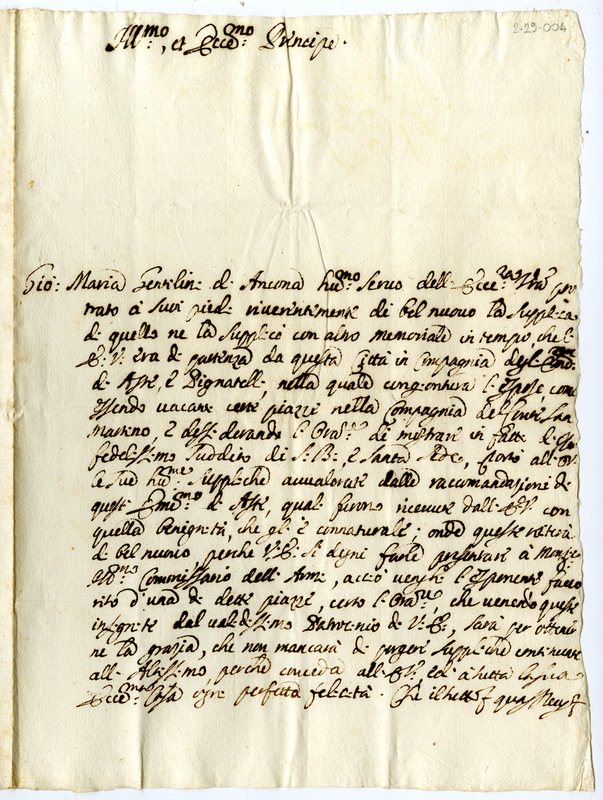 2-29-004
Ill:mo, et Ecce:mo Principe.
Gio: Maria Gentilini di Ancona hu:mo Seruo dell Ecce:za Vra pro
trato à Suoi piedi riuerintemente di bel nuouo la Supplica
di quello ne la Supplicò con altro memoriale in tempo, che l'
E: V: era di partenza da questa Città in Compagnia degl'
di Aste, è Pignatelli, nella quale congiontura l' espose, come
essendo uacate certe piazze nella Compagnia del San
Martino, è desiderando l' Ora:re di mostrarsi in fatti
fedelissimo Suddito di S: B:, è Santa Sede, portò all
le Sue hu:me Suppliche aualorate dalle raccomandazioni di
quest Em:mo di Aste, quali furono riceuute dall con
quella benignità, che gl' è connaturale; onde queste
di bel nuouo perche V: E: Si degni farle presentare à Monsig:
Commissario dell Armi, acciò uenghi l' Esponente fauo
rito d'una di dette piazze, certo l' Ora:re, che uenendo queste
dal ualidissimo Patrocinio di V: E:, sarà per ottener
ne la grazia, che non mancarà di porgere Suppliche continuate
all Altissimo, perche conceda all E: V: ed à tutta
Ecce:ma Casa ogni perfetta felicità. Che il tutto